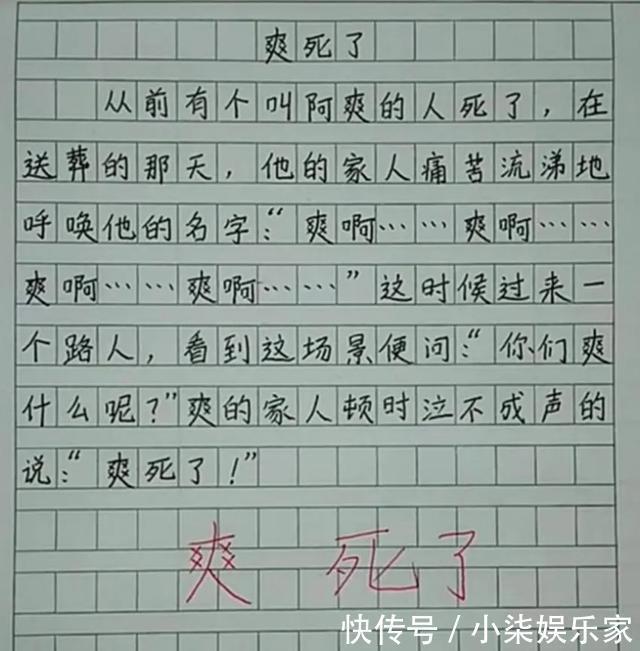 爽死了
从前有个叫阿爽的人死了，在
送葬的那天，他的家人痛苦流涕地
呼唤他的名字：“爽啊……爽啊……
爽啊……爽啊……”这时候过来一
个路人，看到这场景便问：“你们爽
什么呢？”爽的家人顿时泣不成声的
说：“爽死了！”
爽 死了
快传号／小柒娱乐家